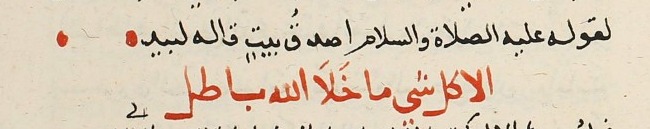 لقوله عليه الصلاة والسلام اصدقُ بيتٍ قاله لبيد
الا كل شي ما خَلَا الله باطل